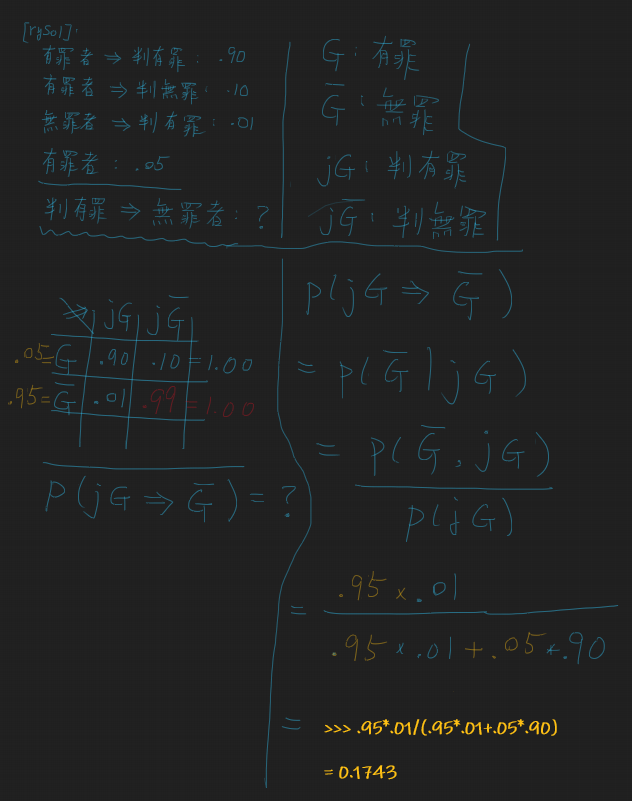 [rySol]:
有罪者 ⇒ 判有罪: .90
有罪者 ⇒ 判無罪: .10
無罪者 ⇒ 判有罪: .01
有罪者: .05
判有罪 ⇒ 無罪者: ?
G: 有罪
G̅: 無罪
jG: 判有罪
jG̅: 判無罪
⇒ jG jG̅
.05=G .90 .10 =1.00
.95=G̅ .01 .99 =1.00
P(jG ⇒ G̅) = ?
P(jG ⇒ G̅)
= P(G̅ | jG)
= P(G̅, jG)
P(jG)
= .95 × .01
.95 × .01 + .05 × .90
= >>> .95*.01/(.95*.01+.05*.90)
= 0.1743